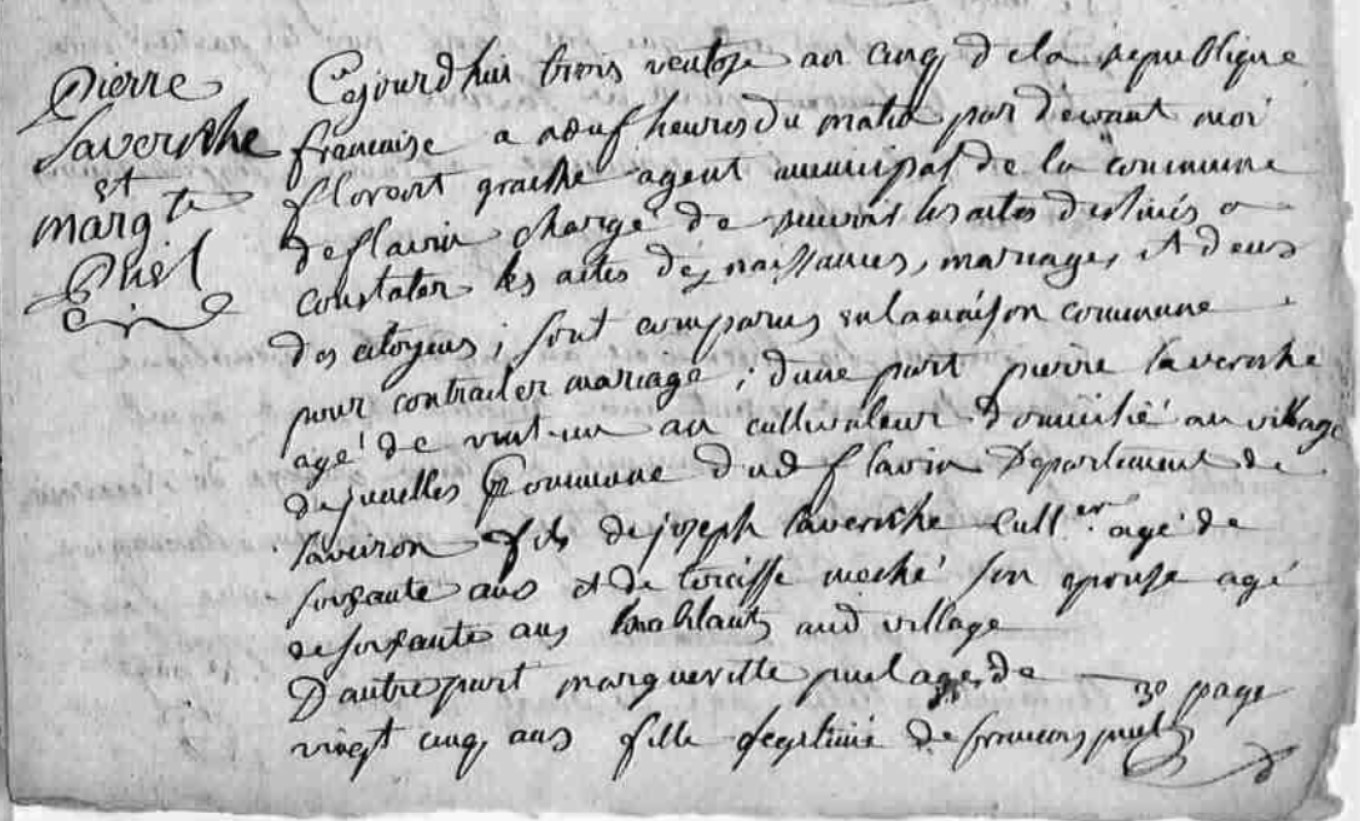 Pierre
Laverihe
et
margte
Puel
Cejourdhui trois ventose an cinq de la republique
francaise a neuf heures du matin par devant moi
florent agent municipal de la commune
de flavin chargé de les actes destinés a
constater les actes des naissances, mariages, et deces
des citoyens ; sont comparus en la maison commune
pour contracter mariage ; dune part pierre laverihe
agé de vint-un an cultivateur domicilié au village
de commune dud flavin departement de
laveiron fils de joseph laverihe cult.er agé de
soixante ans et de son epouse agé
de soixante ans aud village
D'autre part margueritte puel agé de
vingt cinq ans fille legitime de francois puel
30 page